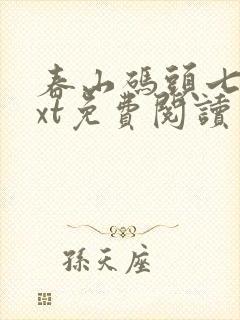 春山碼頭七
xt免費閱讀
孫天座